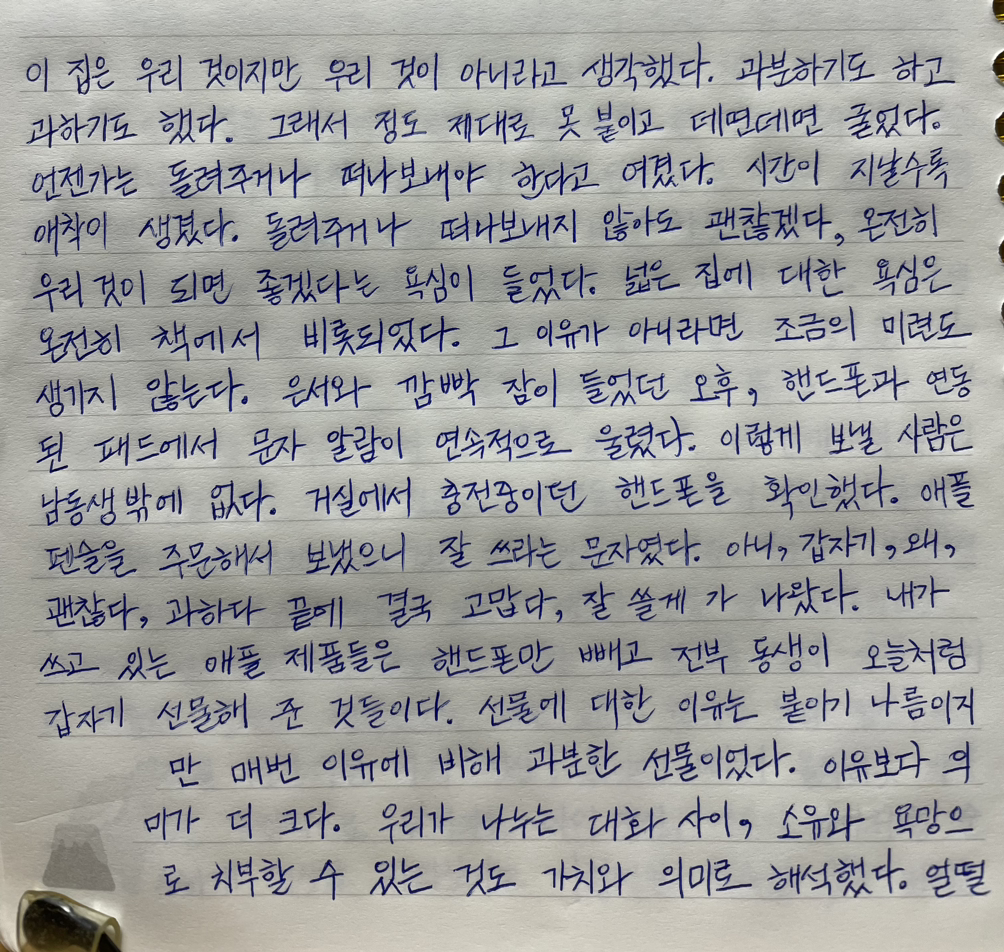 이 집은 우리 것이지만 우리 것이 아니라고 생각했다. 과분하기도 하고
과하기도 했다. 그래서 정도 제대로 못 붙이고 데면데면 굴었다.
언젠가는 돌려주거나 떠나보내야 한다고 여겼다. 시간이 지날수록
애착이 생겼다. 돌려주거나 떠나보내지 않아도 괜찮겠다, 온전히
우리 것이 되면 좋겠다는 욕심이 들었다. 넓은 집에 대한 욕심은
온전히 책에서 비롯되었다. 그 이유가 아니라면 조금의 미련도
생기지 않는다. 은서와 깜빡 잠이 들었던 오후, 핸드폰과 연동
된 패드에서 문자 알람이 연속적으로 울렸다. 이렇게 보낼 사람은
남동생밖에 없다. 거실에서 충전중이던 핸드폰을 확인했다. 애플
펜슬을 주문해서 보냈으니 잘 쓰라는 문자였다. 아니, 갑자기, 왜,
괜찮다, 과하다 끝에 결국 고맙다, 잘 쓸게 가 나왔다. 내가
쓰고 있는 애플 제품들은 핸드폰만 빼고 전부 동생이 오늘처럼
갑자기 선물해 준 것들이다. 선물에 대한 이유는 붙이기 나름이지
만 매번 이유에 비해 과분한 선물이었다. 이유보다 의
미가 더 크다. 우리가 나누는 대화 사이, 소유와 욕망으
로 치부할 수 있는 것도 가치와 의미로 해석했다. 얼떨